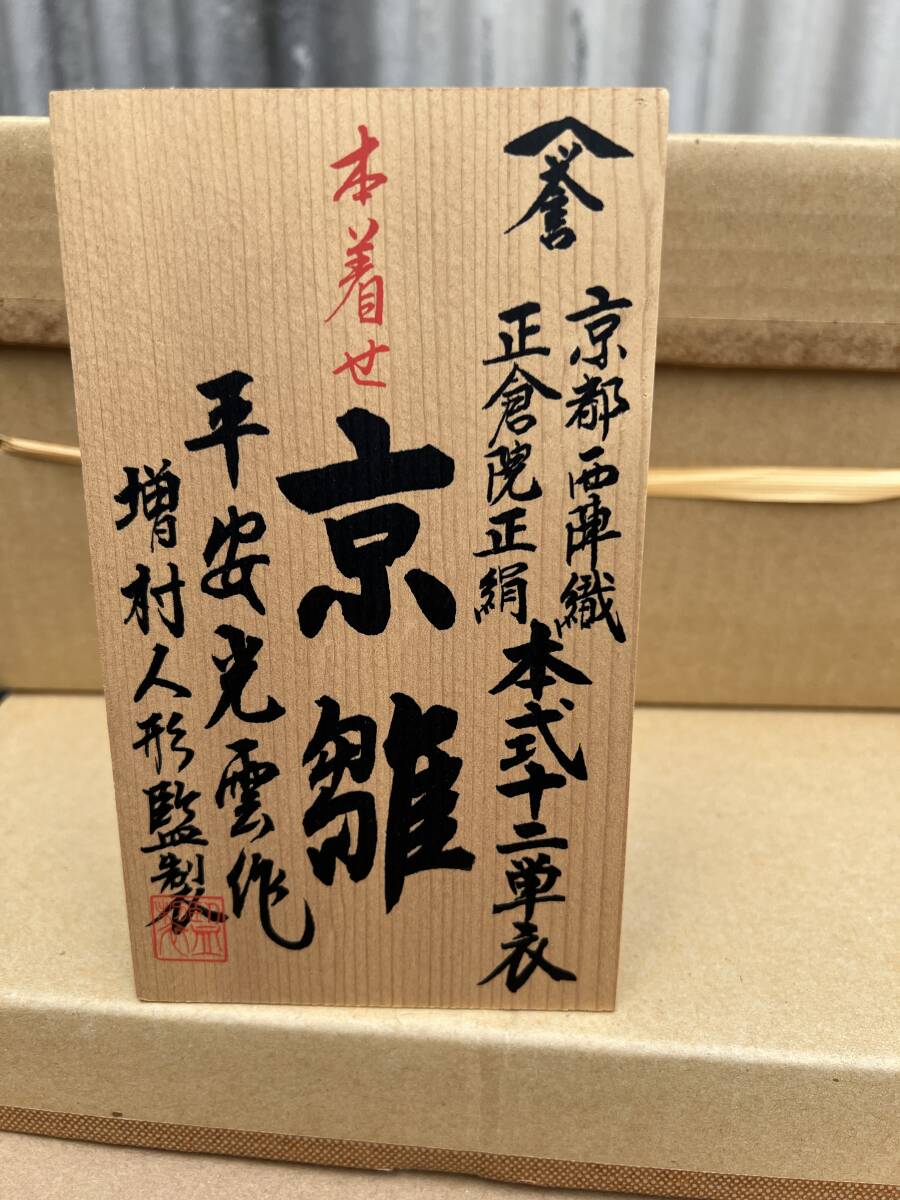 誉
京都西陣織
正倉院正絹
本式十二単衣
本着せ
京雛
平安光雲作
増村人形監製
監製